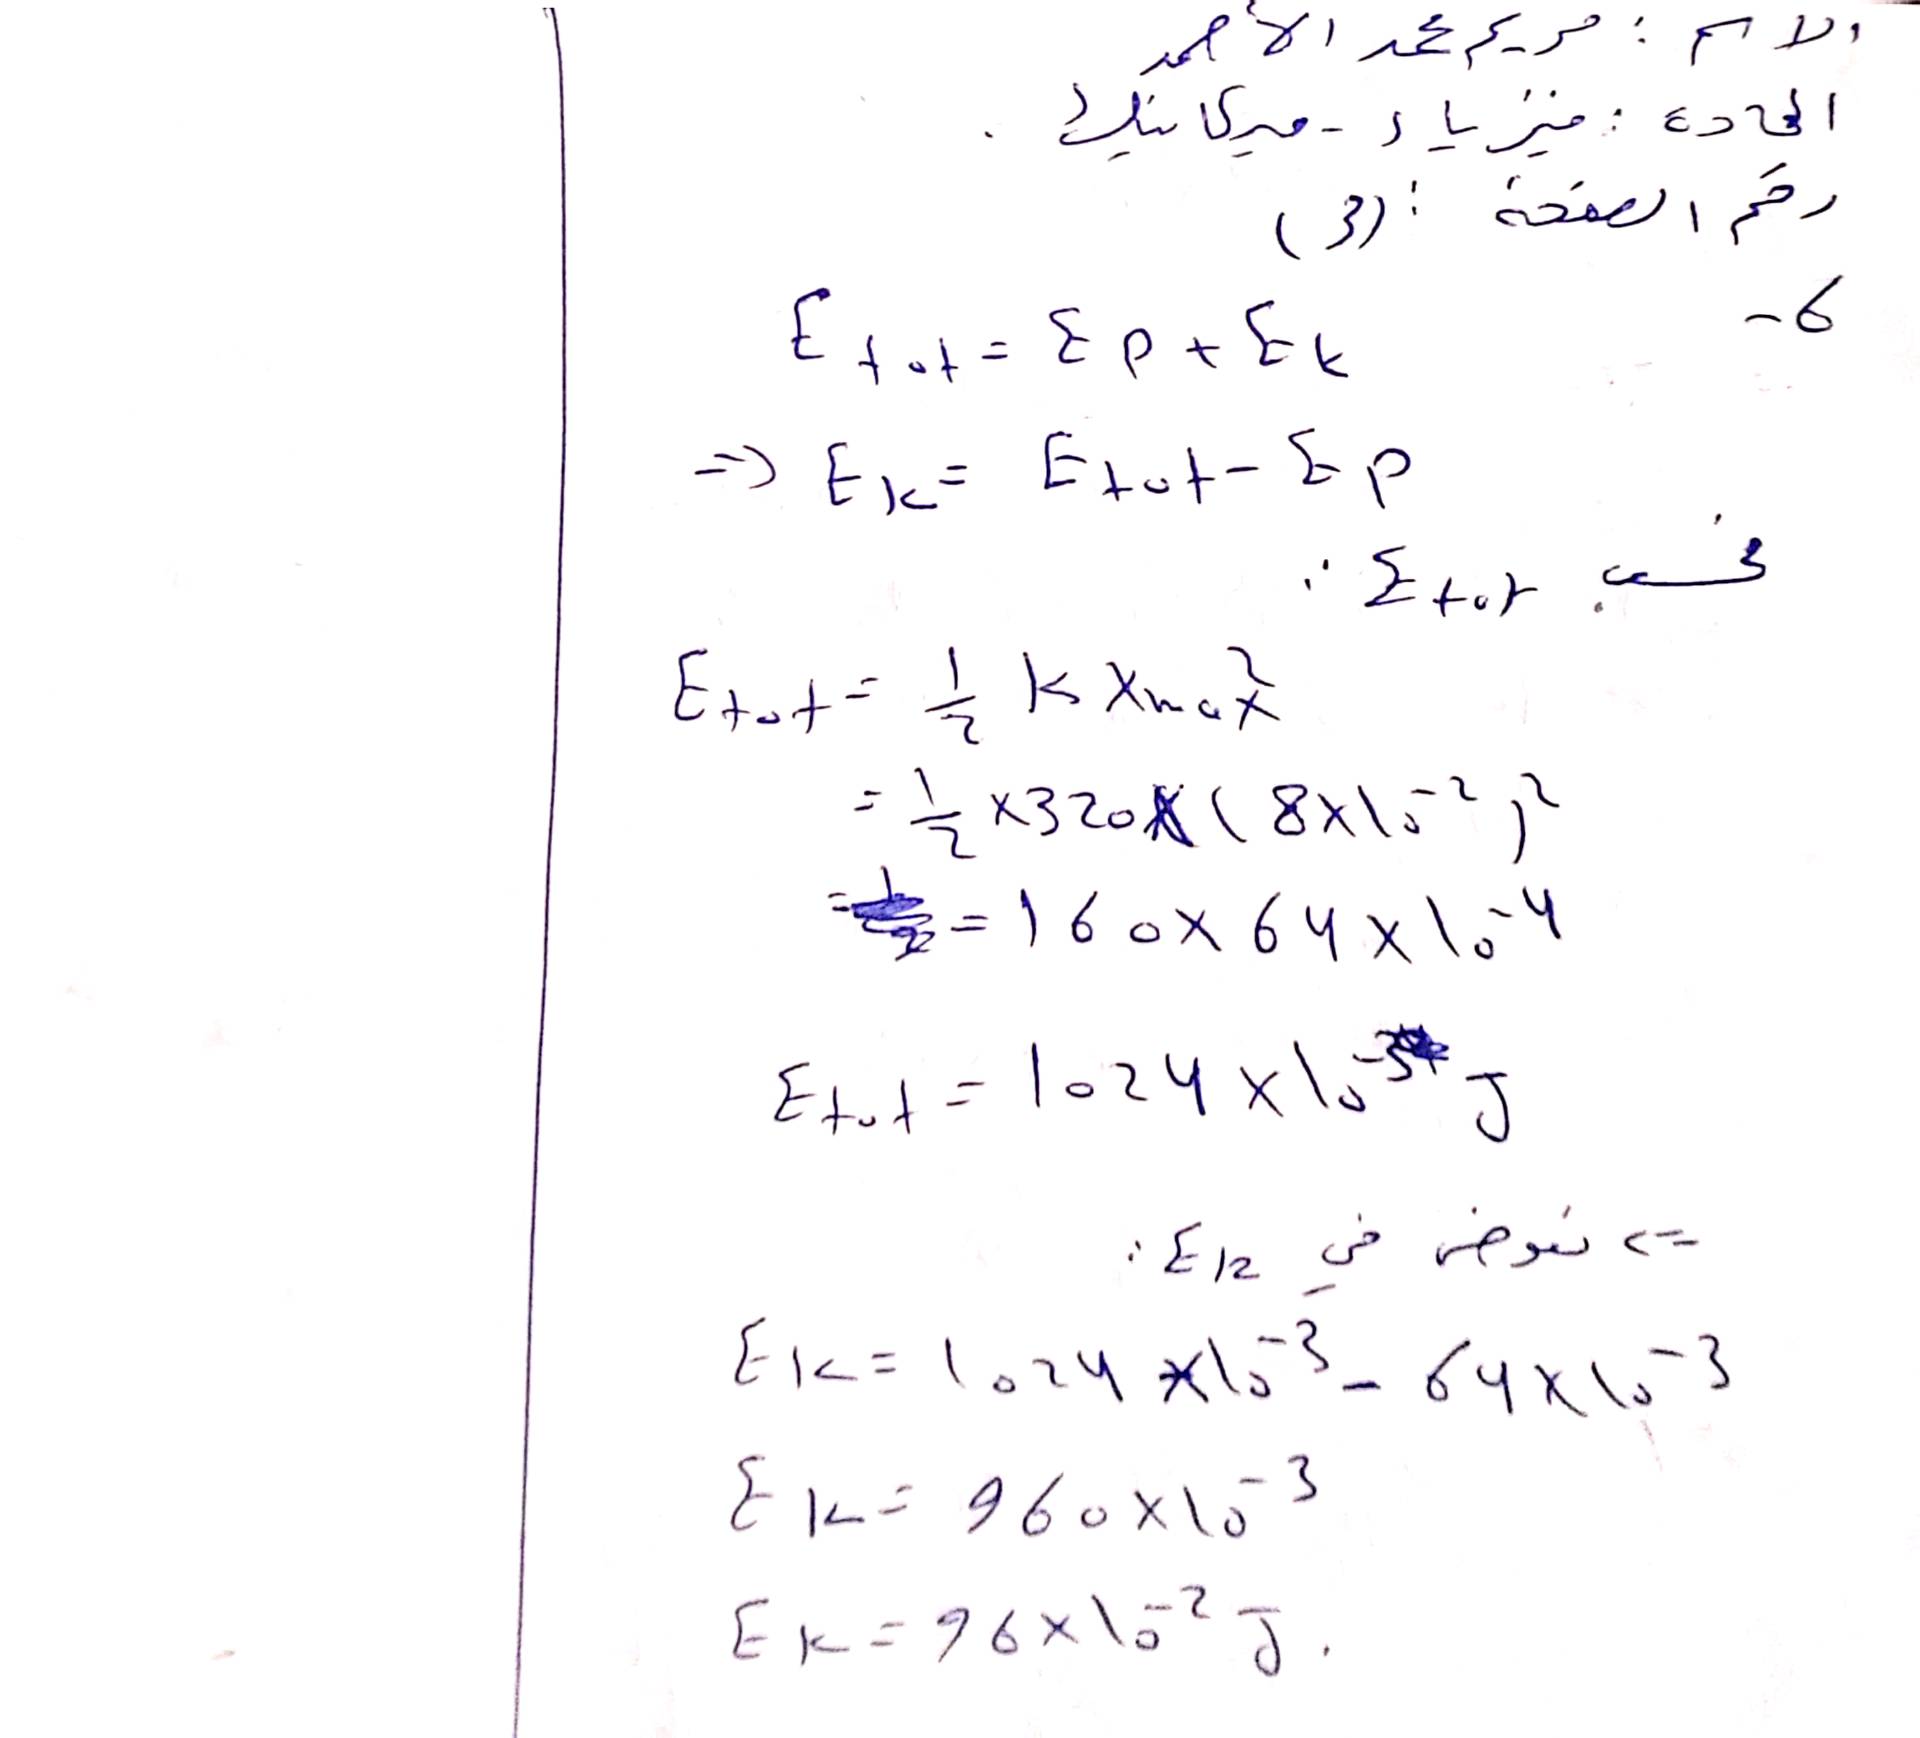 الاسم : مريم محمد الأحمد
المادة : فيزياء - ميكانيك .
رقم الصفحة : (3)
6-
E tot = Ep + Ek
=> Ek = E tot - Ep
نحسب E tot :
E tot = 1/2 k Xmax²
= 1/2 x320x (8x10⁻²)²
= 160x 64x10⁻⁴
E tot = 1024x10⁻³ J
=> نعوض في Ek :
Ek = 1024x10⁻³ - 64x10⁻³
Ek = 960x10⁻³
Ek = 96x10⁻² J .